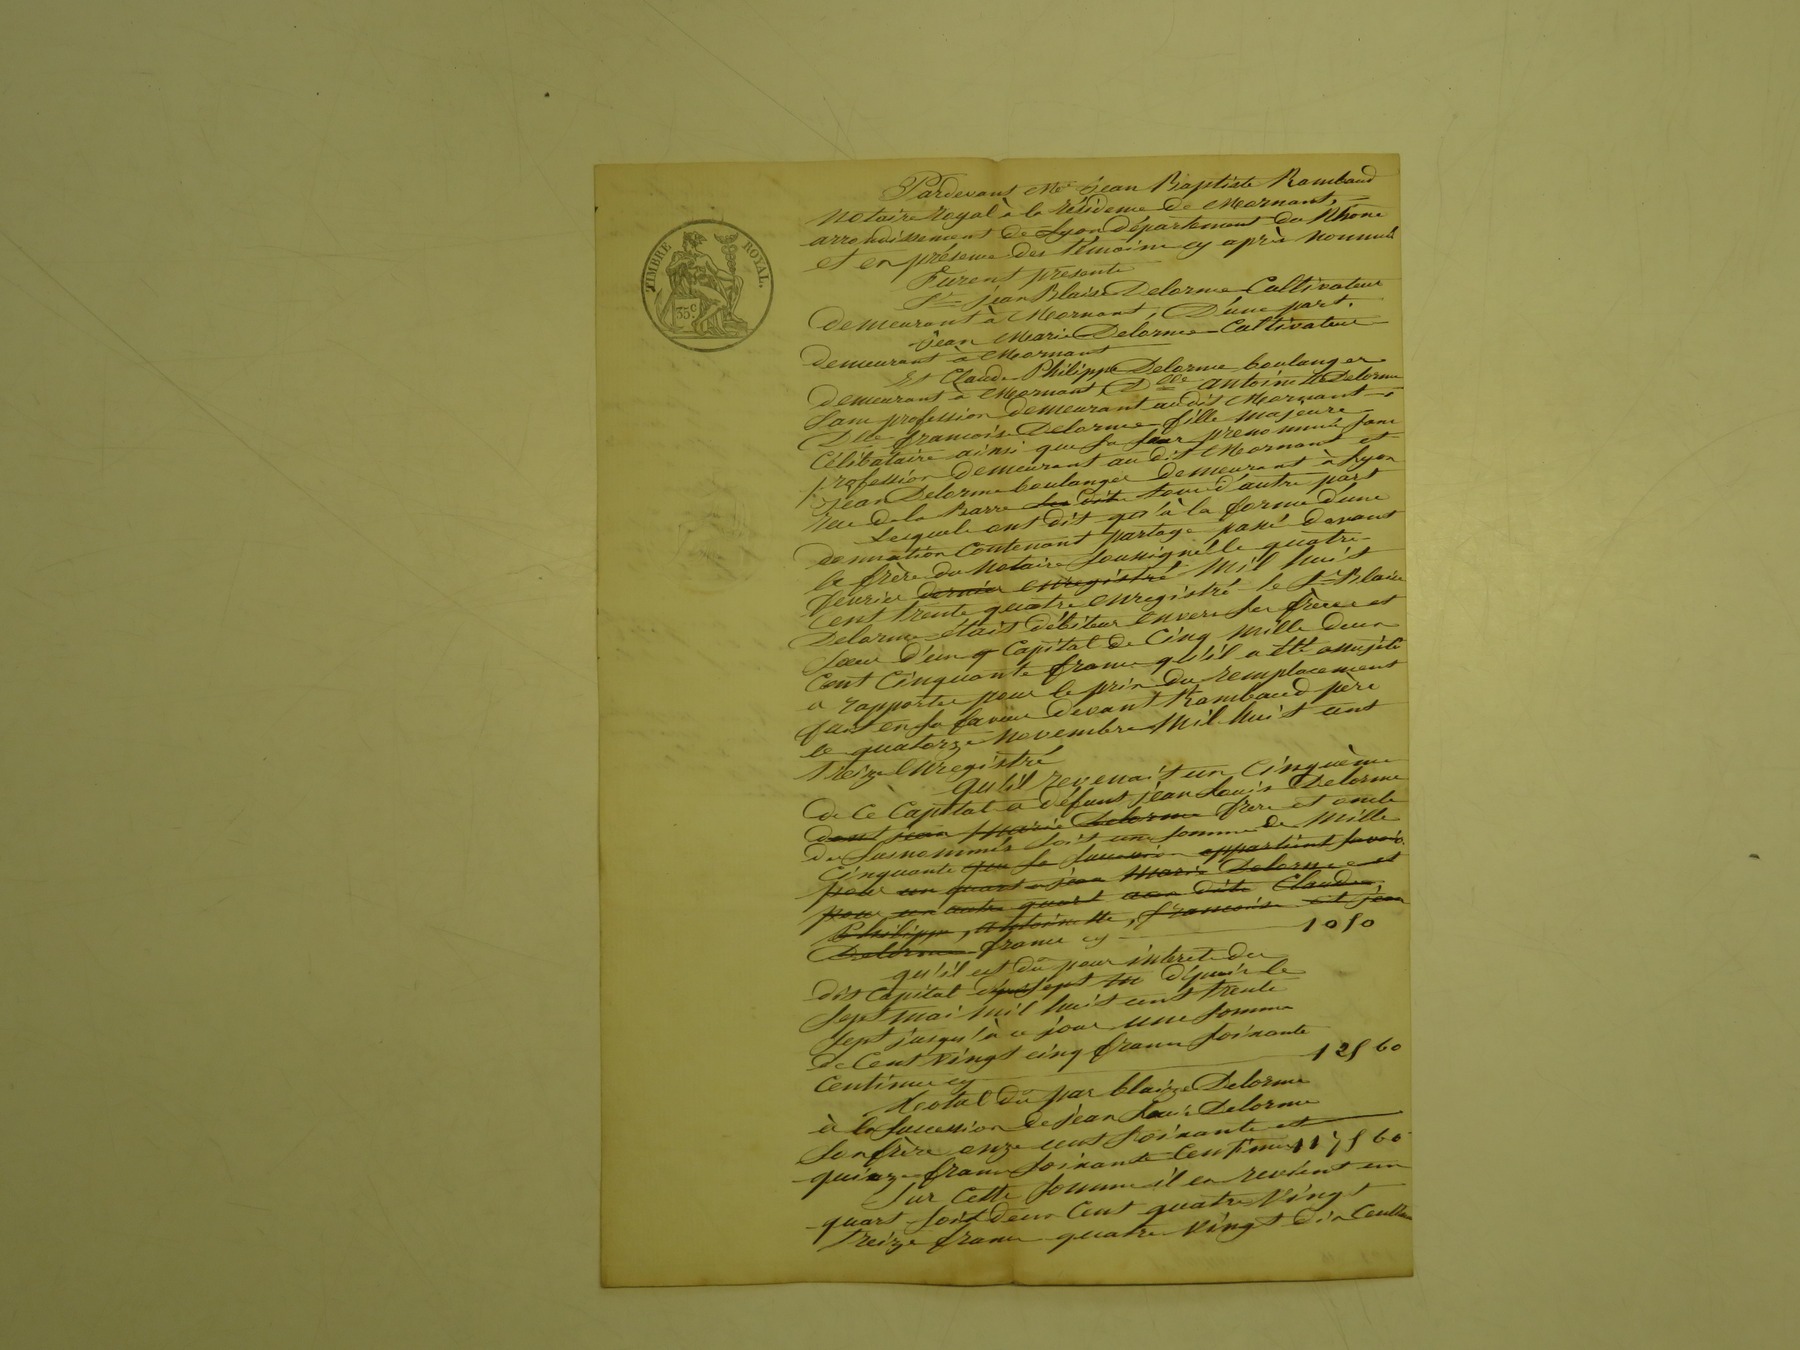 TIMBRE ROYAL.
35 c.
Pardevant Me Jean Baptiste Rambaud
notaire royal à la résidence de Mornant,
arrondissement de Lyon département du Rhône
et en présence des témoins cy après nommés
Furent présents
Sr Jean Blaise Delorme Cultivateur
demeurant à Mornant, D'une part.
Jean Marie Delorme Cultivateur
demeurant à Mornant
Et Claude Philippe Delorme boulanger
demeurant à Mornant, Dlle antoinette Delorme
sans profession demeurant audit Mornant,
Dlle francoise Delorme fille majeure
Célibataire ainsi que sa sœur prenommée sans
profession demeurant audit Mornant et
Jean Delorme boulanger demeurant à Lyon
rue de la Barre tous d'autre part
Lesquels ont dit qu'à la forme d'une
donnation Contenant partage passé devant
le frère du Notaire soussigné le quatre
fevrier dernier enregistré mil huit
cent trente quatre enregistré le Sr Blaise
Delorme était débiteur envers ses frères et
sœur d'un Capital de Cinq mille deux
Cent Cinquante francs qu'il a été assujéti
a rapporter pour le prix du remplacement
fait en sa faveur devant Rambaud père
le quatorze novembre mil huit cent
treize enregistré
qu'il revenait un Cinquème
de ce Capital a défunt jean Louis Delorme
dont jean Marie Delorme frère et oncle
des susnommés soit une somme de Mille
Cinquante que sa succession appartient savoir
pour un quart a jean Marie Delorme et
pour un autre quart aux dits Claude
Philippe, antoinette, francoise et jean
Delorme francs cy 1050
qu'il est dû pour intérets du
dit Capital depuis le
sept mai mil huit cent trente
sept jusqu'à ce jour une somme
de Cent vingt cinq francs soixante
Centimes cy 125 60
total dû par blaize Delorme
à la succession de jean Louis Delorme
son frère onze cent soixante et
quinze francs soixante Centimes 1175 60
sur cette somme il en revient un
quart soit deux Cent quatre vingt
treize francs quatre vingt dix Centimes